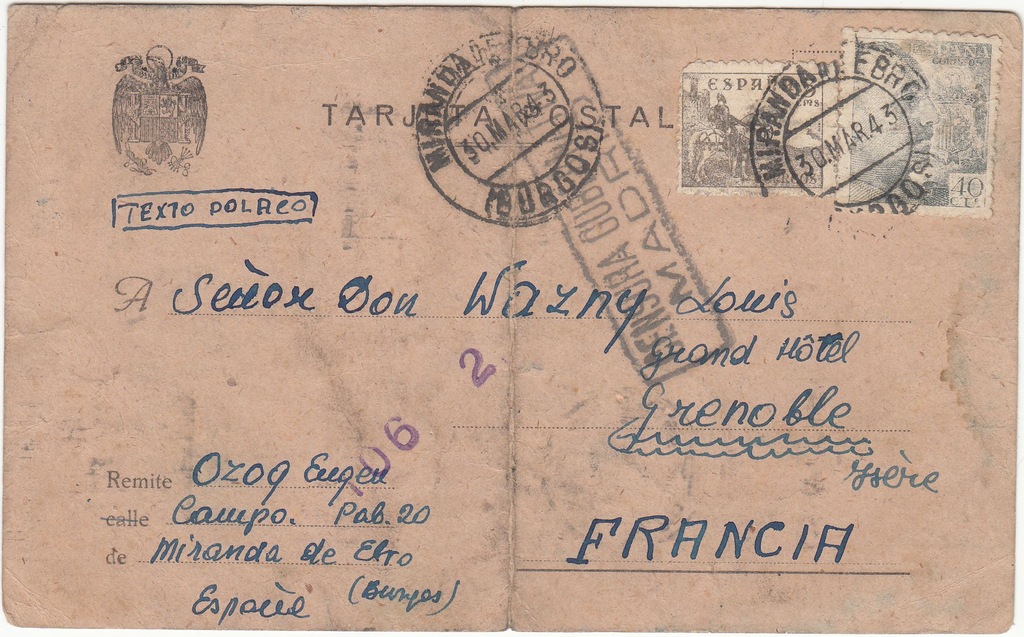 TARJETA POSTAL
MIRANDA DE EBRO
30.MAR43
(BURGOS)
CENSURA GUB
MADRID
ESPAÑA
MIRANDA DE EBRO
30.MAR43
(BURGOS)
ESPAÑA
CORREOS
40
CTS
TEXTO POLACO
A Señor Don Wazny Louis
Grand Hôtel
Grenoble
Isère
FRANCIA
2
106
Remite Ozog Eugen
calle Campo. Pab. 20
de Miranda de Ebro
España (Burgos)